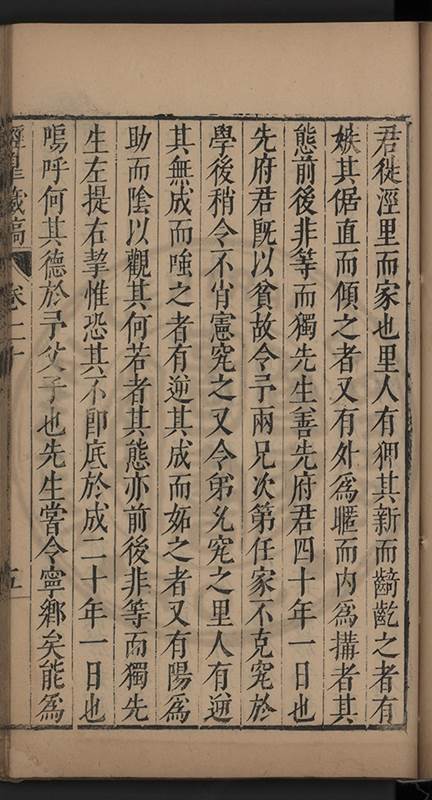 君徙涇里而家也里人有狎其新而齮齕之者有
嫉其倨直而傾之者又有外爲暱而内爲搆者其
態前後非等而獨先生善先府君四十年一日也
先府君旣以貧故令予兩兄次第任家不克究於
學後稍令不肖憲究之又令弟允究之里人有逆
其無成而嗤之者有逆其成而妬之者又有陽爲
助而陰以觀其何若者其態亦前後非等而獨先
生左提右挈惟恐其不卽底於成二十年一日也
嗚呼何其德於予父子也先生嘗令寧鄉矣能爲
涇臯藏稿
卷二十
五